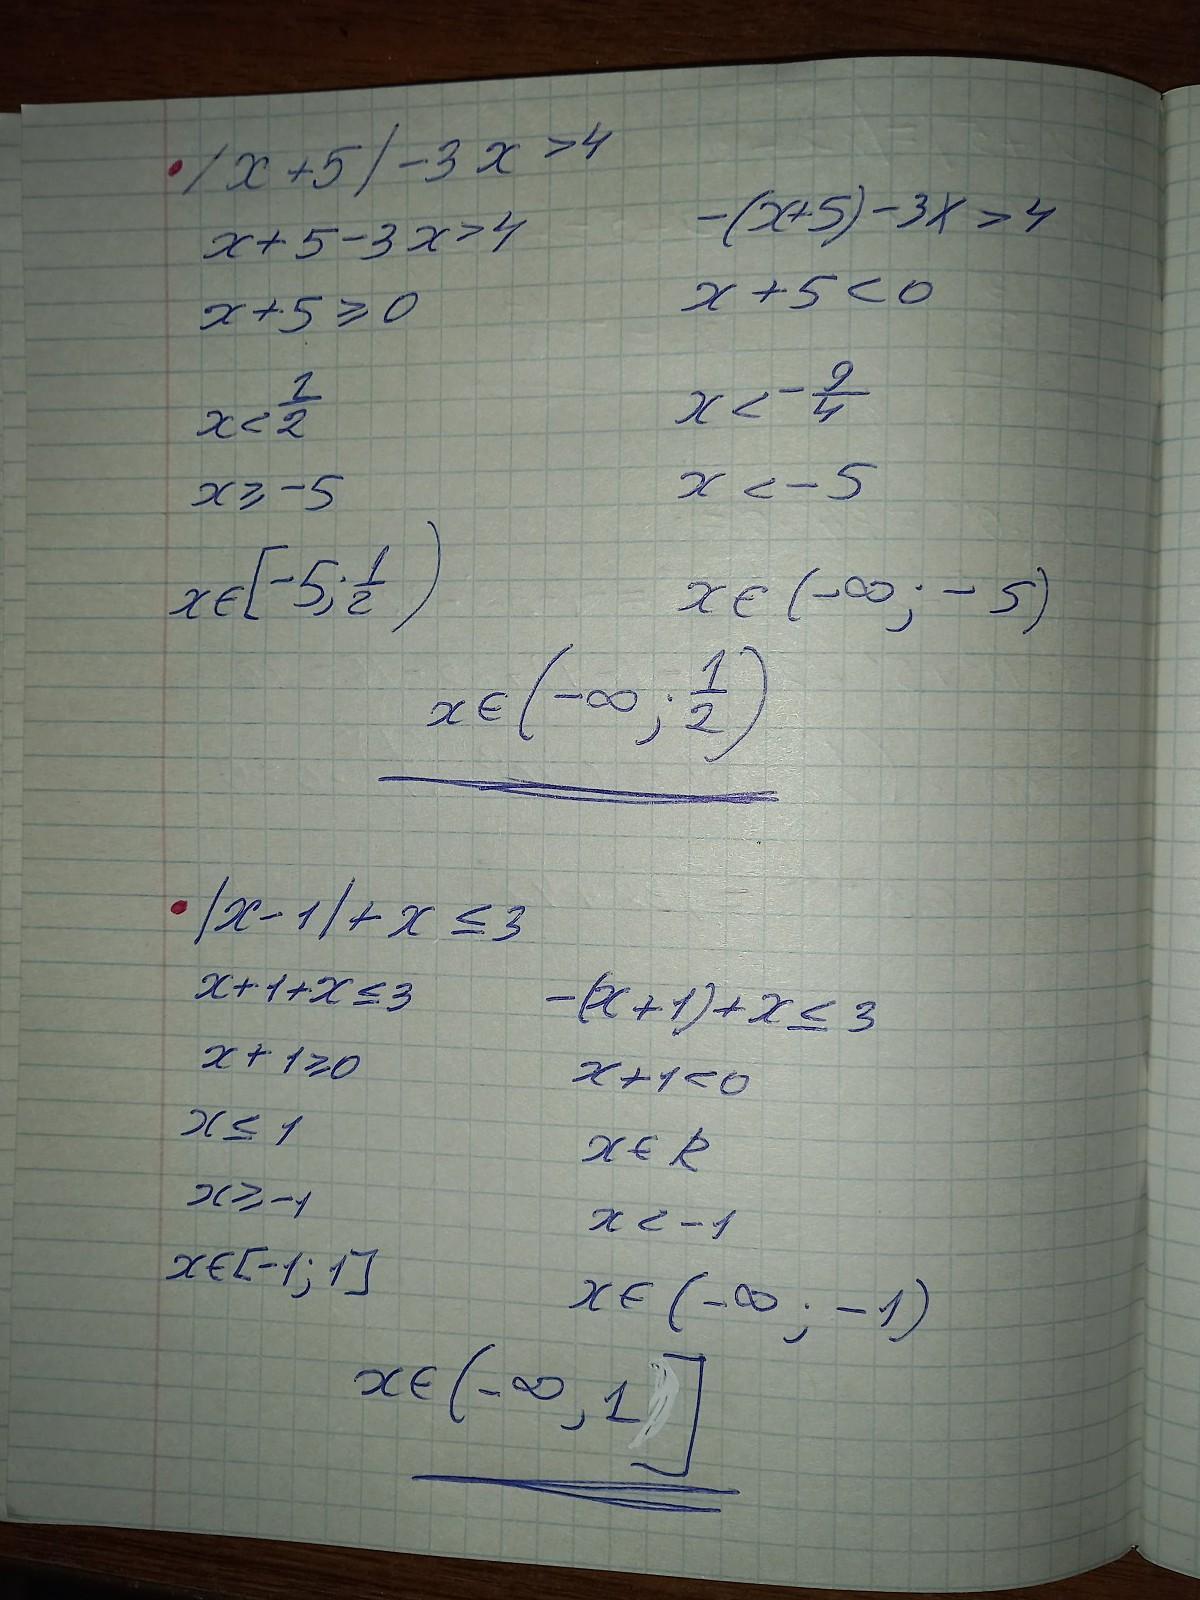 • |x+5|-3x>4
x+5-3x>4
x+5≥0
x<1/2
x≥-5
x∈[-5;1/2)
-(x+5)-3x>4
x+5<0
x<-9/4
x<-5
x∈(-∞;-5)
x∈(-∞;1/2)
• |x-1|+x≤3
x+1+x≤3
x+1≥0
x≤1
x≥-1
x∈[-1;1]
-(x+1)+x≤3
x+1<0
x∈R
x<-1
x∈(-∞;-1)
x∈(-∞,1]